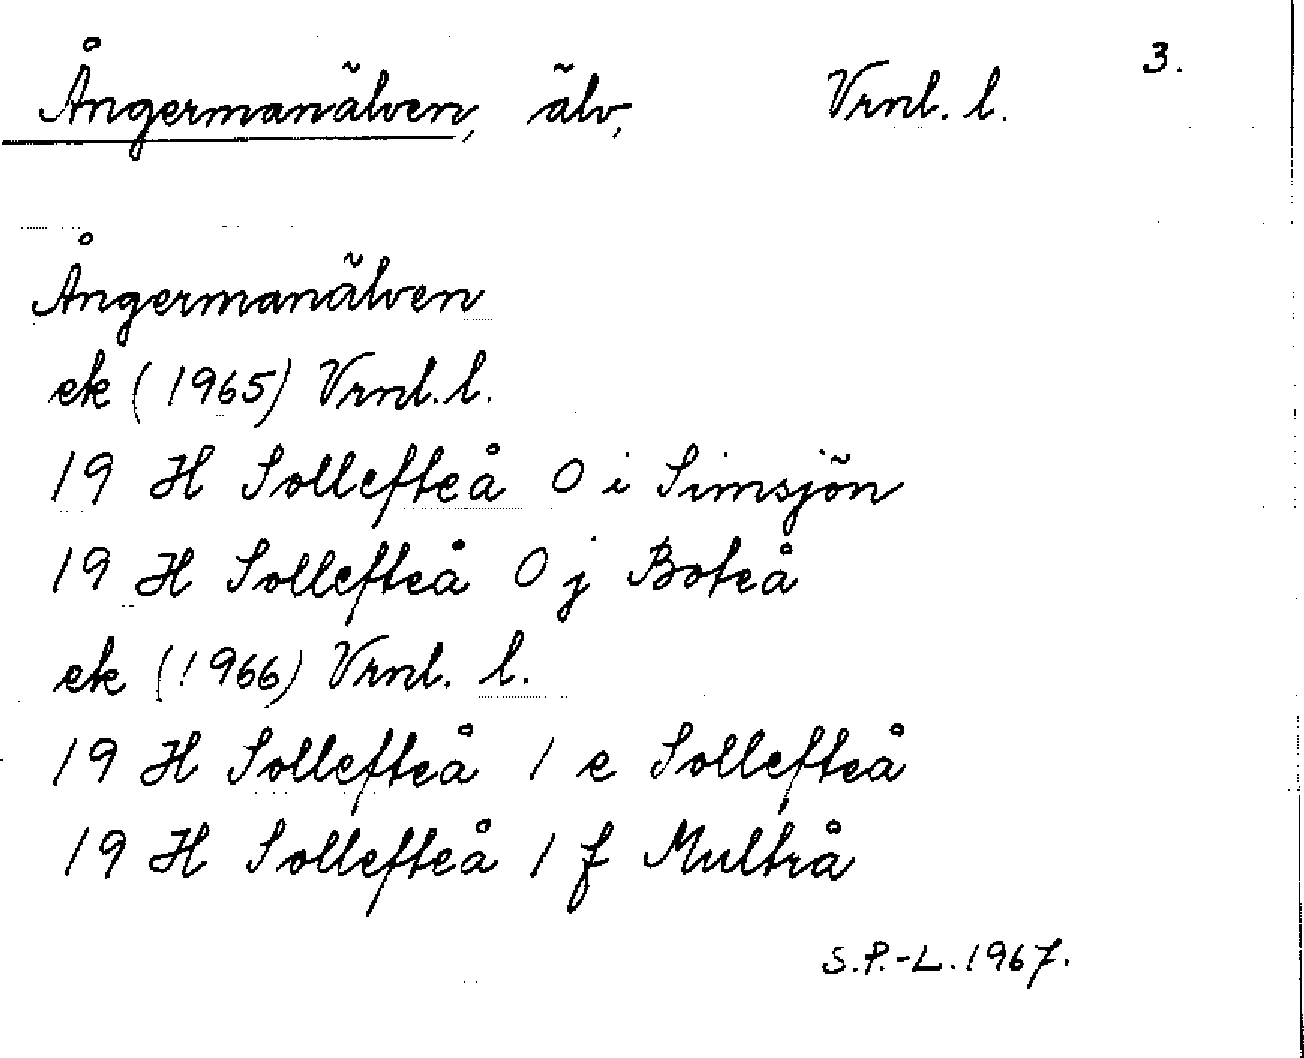 Ångermanälven, älv, Vrnl. l. 3.
Ångermanälven
ek (1965) Vrnl. l.
19 H Sollefteå 0 i Simsjön
19 H Sollefteå 0 j Boteå
ek (1966) Vrnl. l.
19 H Sollefteå 1 e Sollefteå
19 H Sollefteå 1 f Multrå
S.P.-L. 1967.